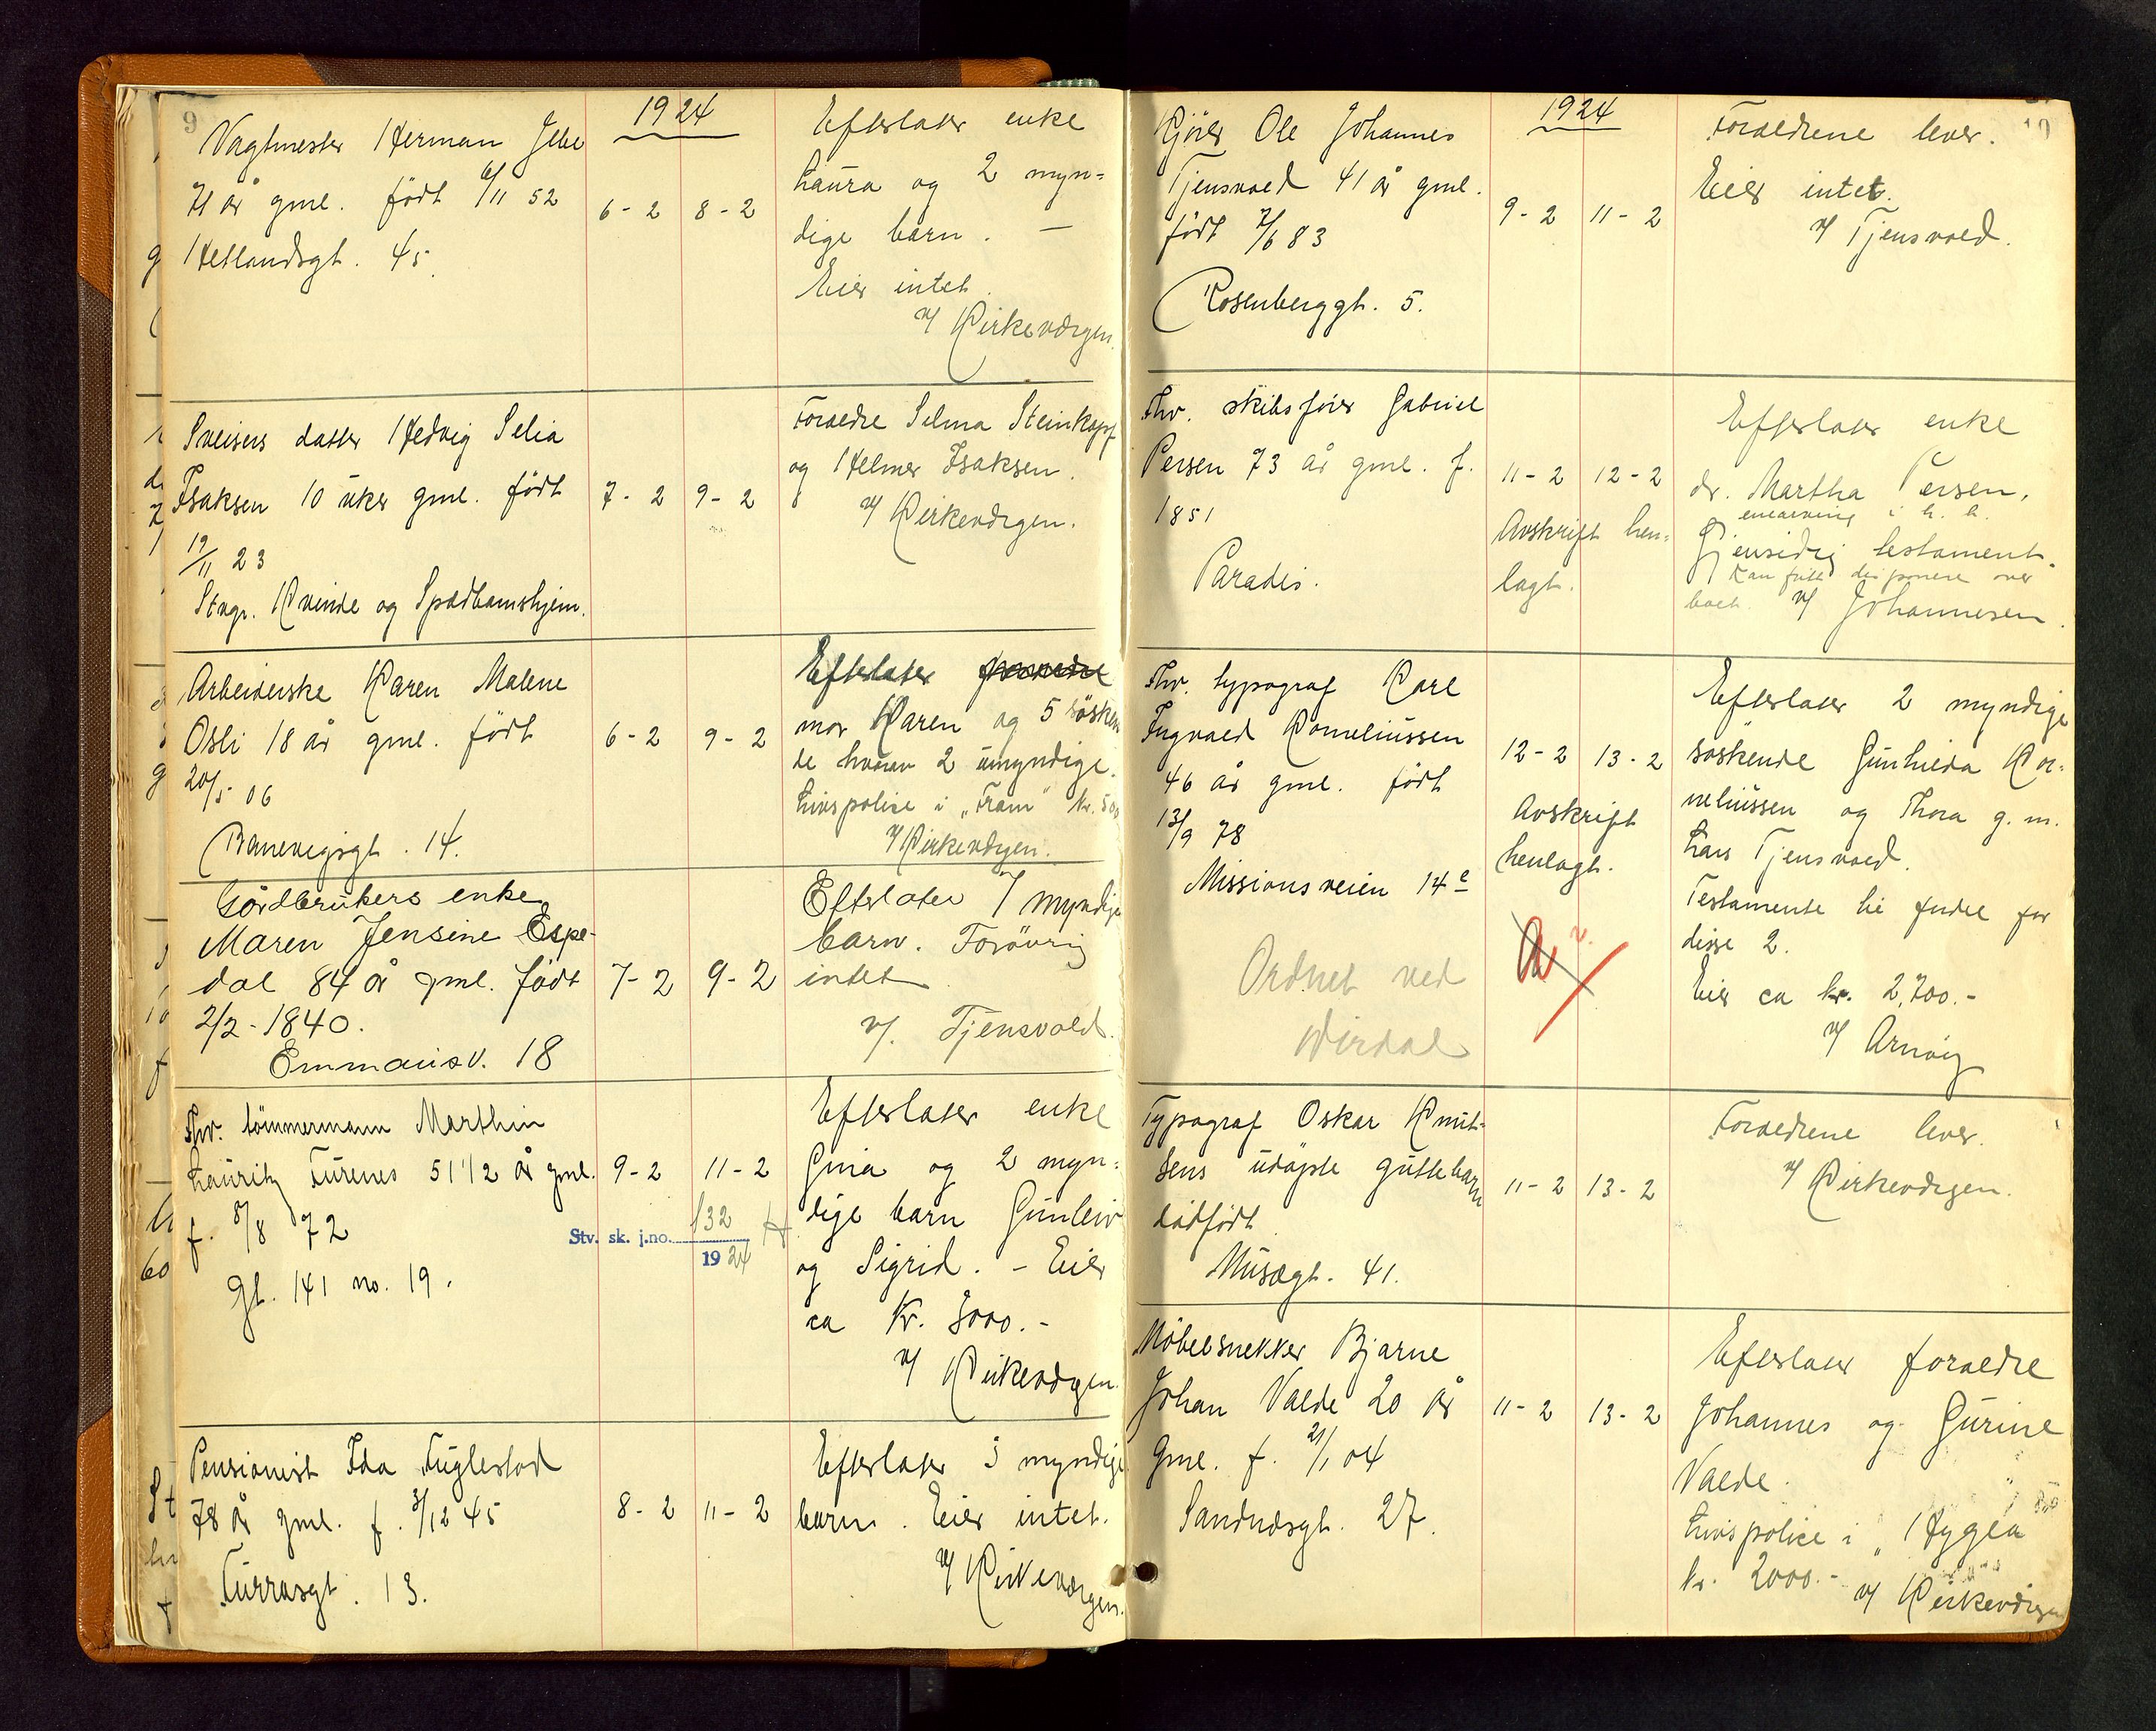 9
1924
Vagtmester Herman Jelle
71 år gml. født 6/11 52
Hetlandsgt. 45.
6-2 8-2
Efterlater enke
Laura og 2 myn=
dige barn. —
Eier intet.
v/ Kirkevergen.
Sveisers datter Hedvig Selia
Isaksen 10 uker gml. født
19/11 23
Stvgr. Kvinde og Spædbarnshjem.
7-2 9-2
Forældre Selma Steinkopf
og Helmer Isaksen.
v/ Kirkevergen.
Arbeiderske Karen Malene
Osli 18 år gml. født
20/5 06
Banevigsgt. 14.
6-2 9-2
Efterlater
mor Karen og 5 søsken
de hvorav 2 umyndige.
Livspolise i „Fram" kr. 500
v/ Kirkevergen.
Gårdbrukers enke
Maren Jensine Espe-
dal 84 år gml. født
2/2-1840.
Emmausv. 18
7-2 9-2
Efterlater 7 myndige
barn. Forøvrig
intet
v/. Tjensvold.
Fhv. tömmermann Marthin
Lauritz Furenes 51 1/2 år gml.
f. 8/8 72
Gt. 141 no. 19.
9-2 11-2
Stv. sk. j.no. 132
1924
Efterlater enke
Gina og 2 myn=
dige barn Gunleiv
og Sigrid. - Eier
ca Kr. 3000.-
v/ Kirkevergen
Pensionist Ida Fuglestad
78 år gml. f. 3/12 45
Turrasgt. 13.
8-2 11-2
Efterlater 3 myndige
barn. Eier intet.
v/ Kirkevergen.
10
1924
Kjörer Ole Johannes
Tjensvold 41 år gml.
født 7/6 83
Rosenberggt. 5.
9-2 11-2
Forældrene lever.
Eier intet.
v/ Tjensvold.
Fhv. skibsfører Gabriel
Persen 73 år gml. f.
1851
Paradis.
11-2 12-2
Avskrift hen=
lagt.
Efterlater enke
dr. Martha Persen,
enearving i h. h.
Gjensidig testament.
Kan fritt disponere over
boet. v/ Johannesen.
Fhv. typograf Karl
Ingvald Korneliussen
46 år gml. født
13/9 78
Missionsveien 14 e
Ordnet ved
Wirdal
12-2 13-2
Avskrift
henlagt.
Efterlater 2 myndige
søskende Gunhilda Kor=
neliussen og Thora g. m.
Lars Tjensvold.
Testamente til fordel for
disse 2.
Eier ca kr. 2,700.-
v/ Arnøy
Typograf Oskar Knut-
sens udöpte guttebarn
dødfødt
Musægt. 41.
11-2 13-2
Forældrene lever.
v/ Kirkevergen.
Möbelsnekker Bjarne
Johan Valde 20 år
gml. f. 21/1 04
Sandnæsgt. 27.
11-2 13-2
Efterlater forældre
Johannes og Gurine
Valde.
Livspolice i „Hygea"
kr. 2000.-
v/ Kirkevergen